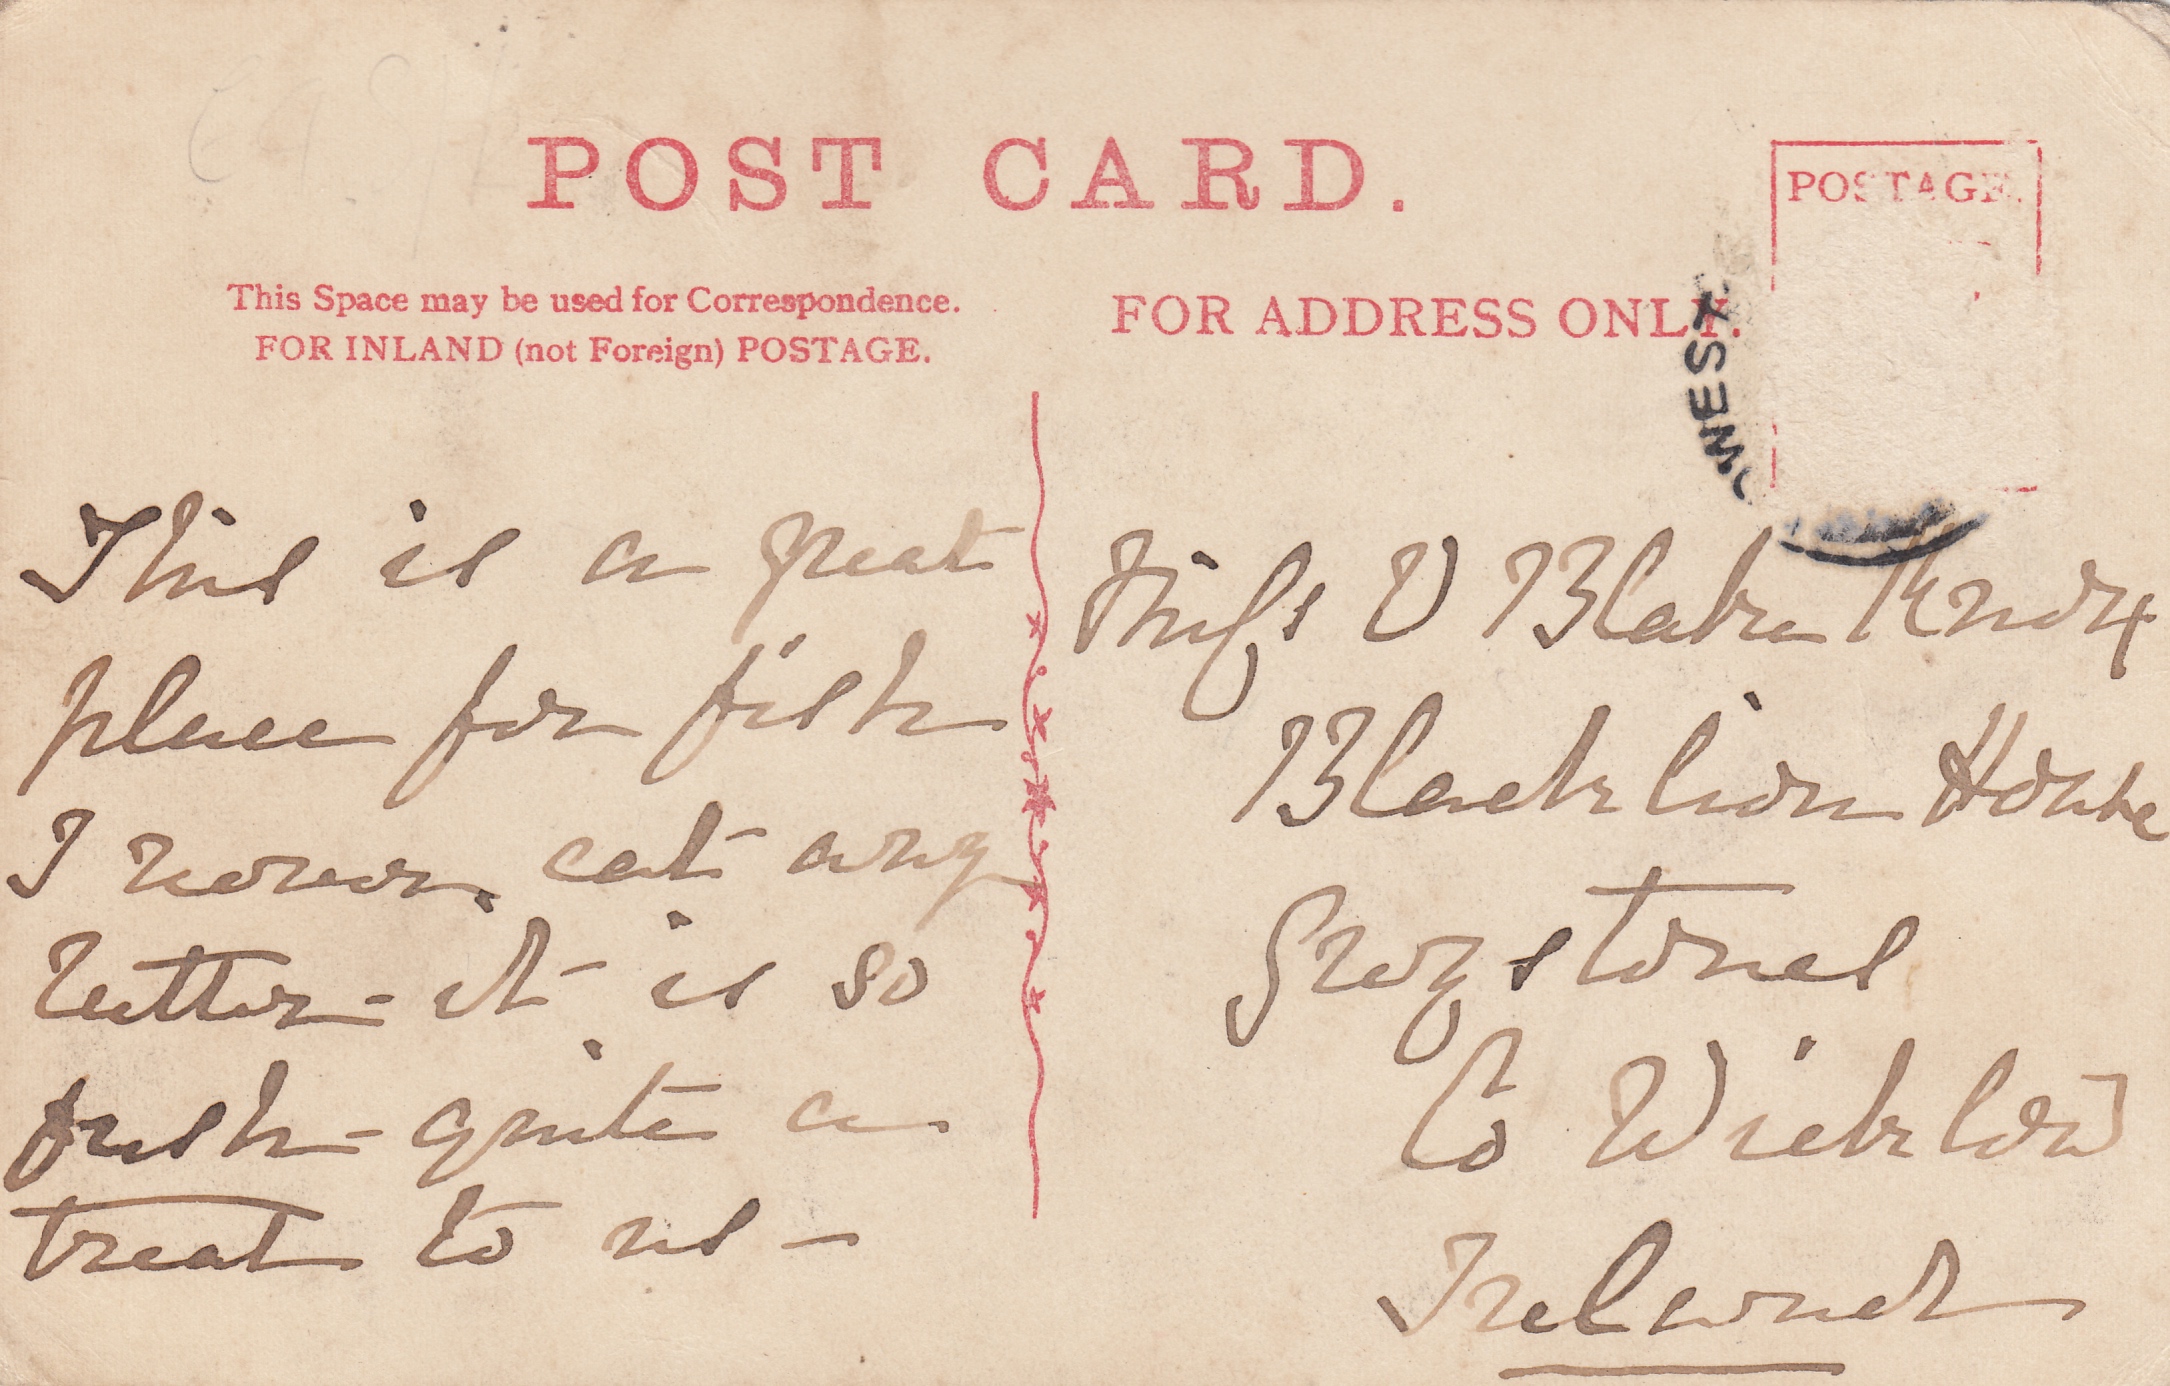 POST CARD.
POSTAGE.
This Space may be used for Correspondence.
FOR INLAND (not Foreign) POSTAGE.
FOR ADDRESS ONLY.
OWEST
This is a great
place for fish
I never eat any
better - it is so
fresh - quite a
treat to us -
Miss V Blake Knox
Blacklion House
Greystones
Co Wicklow
Ireland